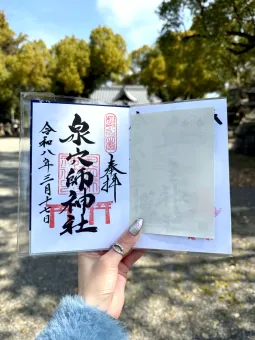 奉拝
泉穴師神社
令和八年三月十七日